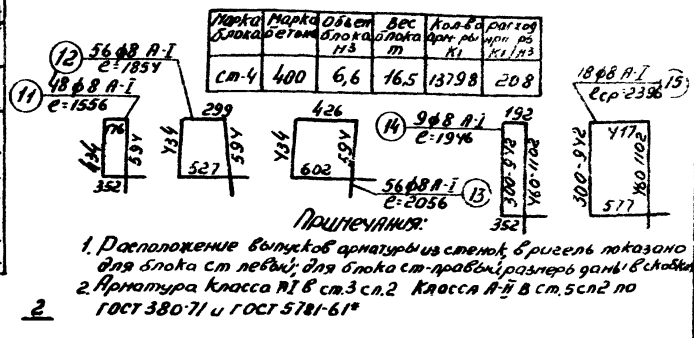 Марка блока Марка бетона Объем блока м3 Вес блока т Кол-во арм-ры кг расход арм-ры кг/м3
Ст-4 400 6,6 16,5 1379,8 208
12 56ф8 А-I
ℓ=1854
11 48ф8 А-I
ℓ=1556
176 434 594 352
299 434 594 527
426 434 594 602
56ф8 А-I 13
ℓ=2056
14 9ф8 А-I
ℓ=1946
192 300-942 460-1102 352
18ф8 А-I 15
ℓср=2396
417 300-942 460-1102 577
Примечания:
1. Расположение выпусков арматуры из стенок в ригель показано
для блока ст левый; для блока ст-правый размеры даны в скобках
2. Арматура класса АI В ст.3 сп.2 Класса А-II В ст.5сп2 по
2 ГОСТ 380-71 и ГОСТ 5781-61*